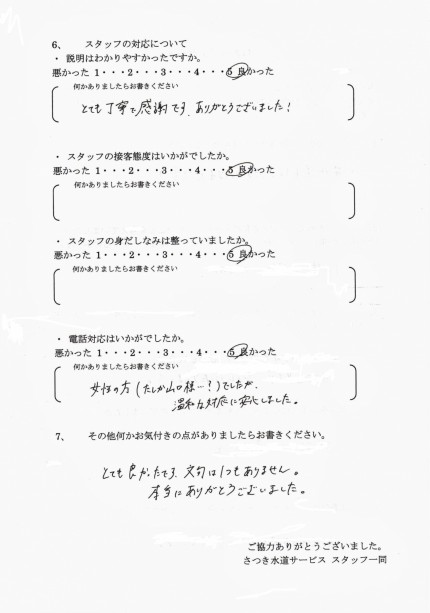 6、 スタッフの対応について
・ 説明はわかりやすかったですか。
悪かった 1・・・2・・・3・・・4・・・5 良かった
何かありましたらお書きください
とても丁寧で感謝です、ありがとうございました!
・ スタッフの接客態度はいかがでしたか。
悪かった 1・・・2・・・3・・・4・・・5 良かった
何かありましたらお書きください
・ スタッフの身だしなみは整っていましたか。
悪かった 1・・・2・・・3・・・4・・・5 良かった
何かありましたらお書きください
・ 電話対応はいかがでしたか。
悪かった 1・・・2・・・3・・・4・・・5 良かった
何かありましたらお書きください
女性の方(たしか山口様…?)でしたが、
温和な対応に安心しました。
7、 その他何かお気付きの点がありましたらお書きください。
とても良かったです、文句は1つもありません。
本当にありがとうございました。
ご協力ありがとうございました。
さつき水道サービス スタッフ一同